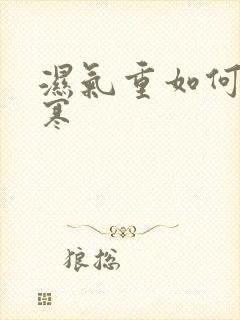 濕氣重如何
寒
狼挖